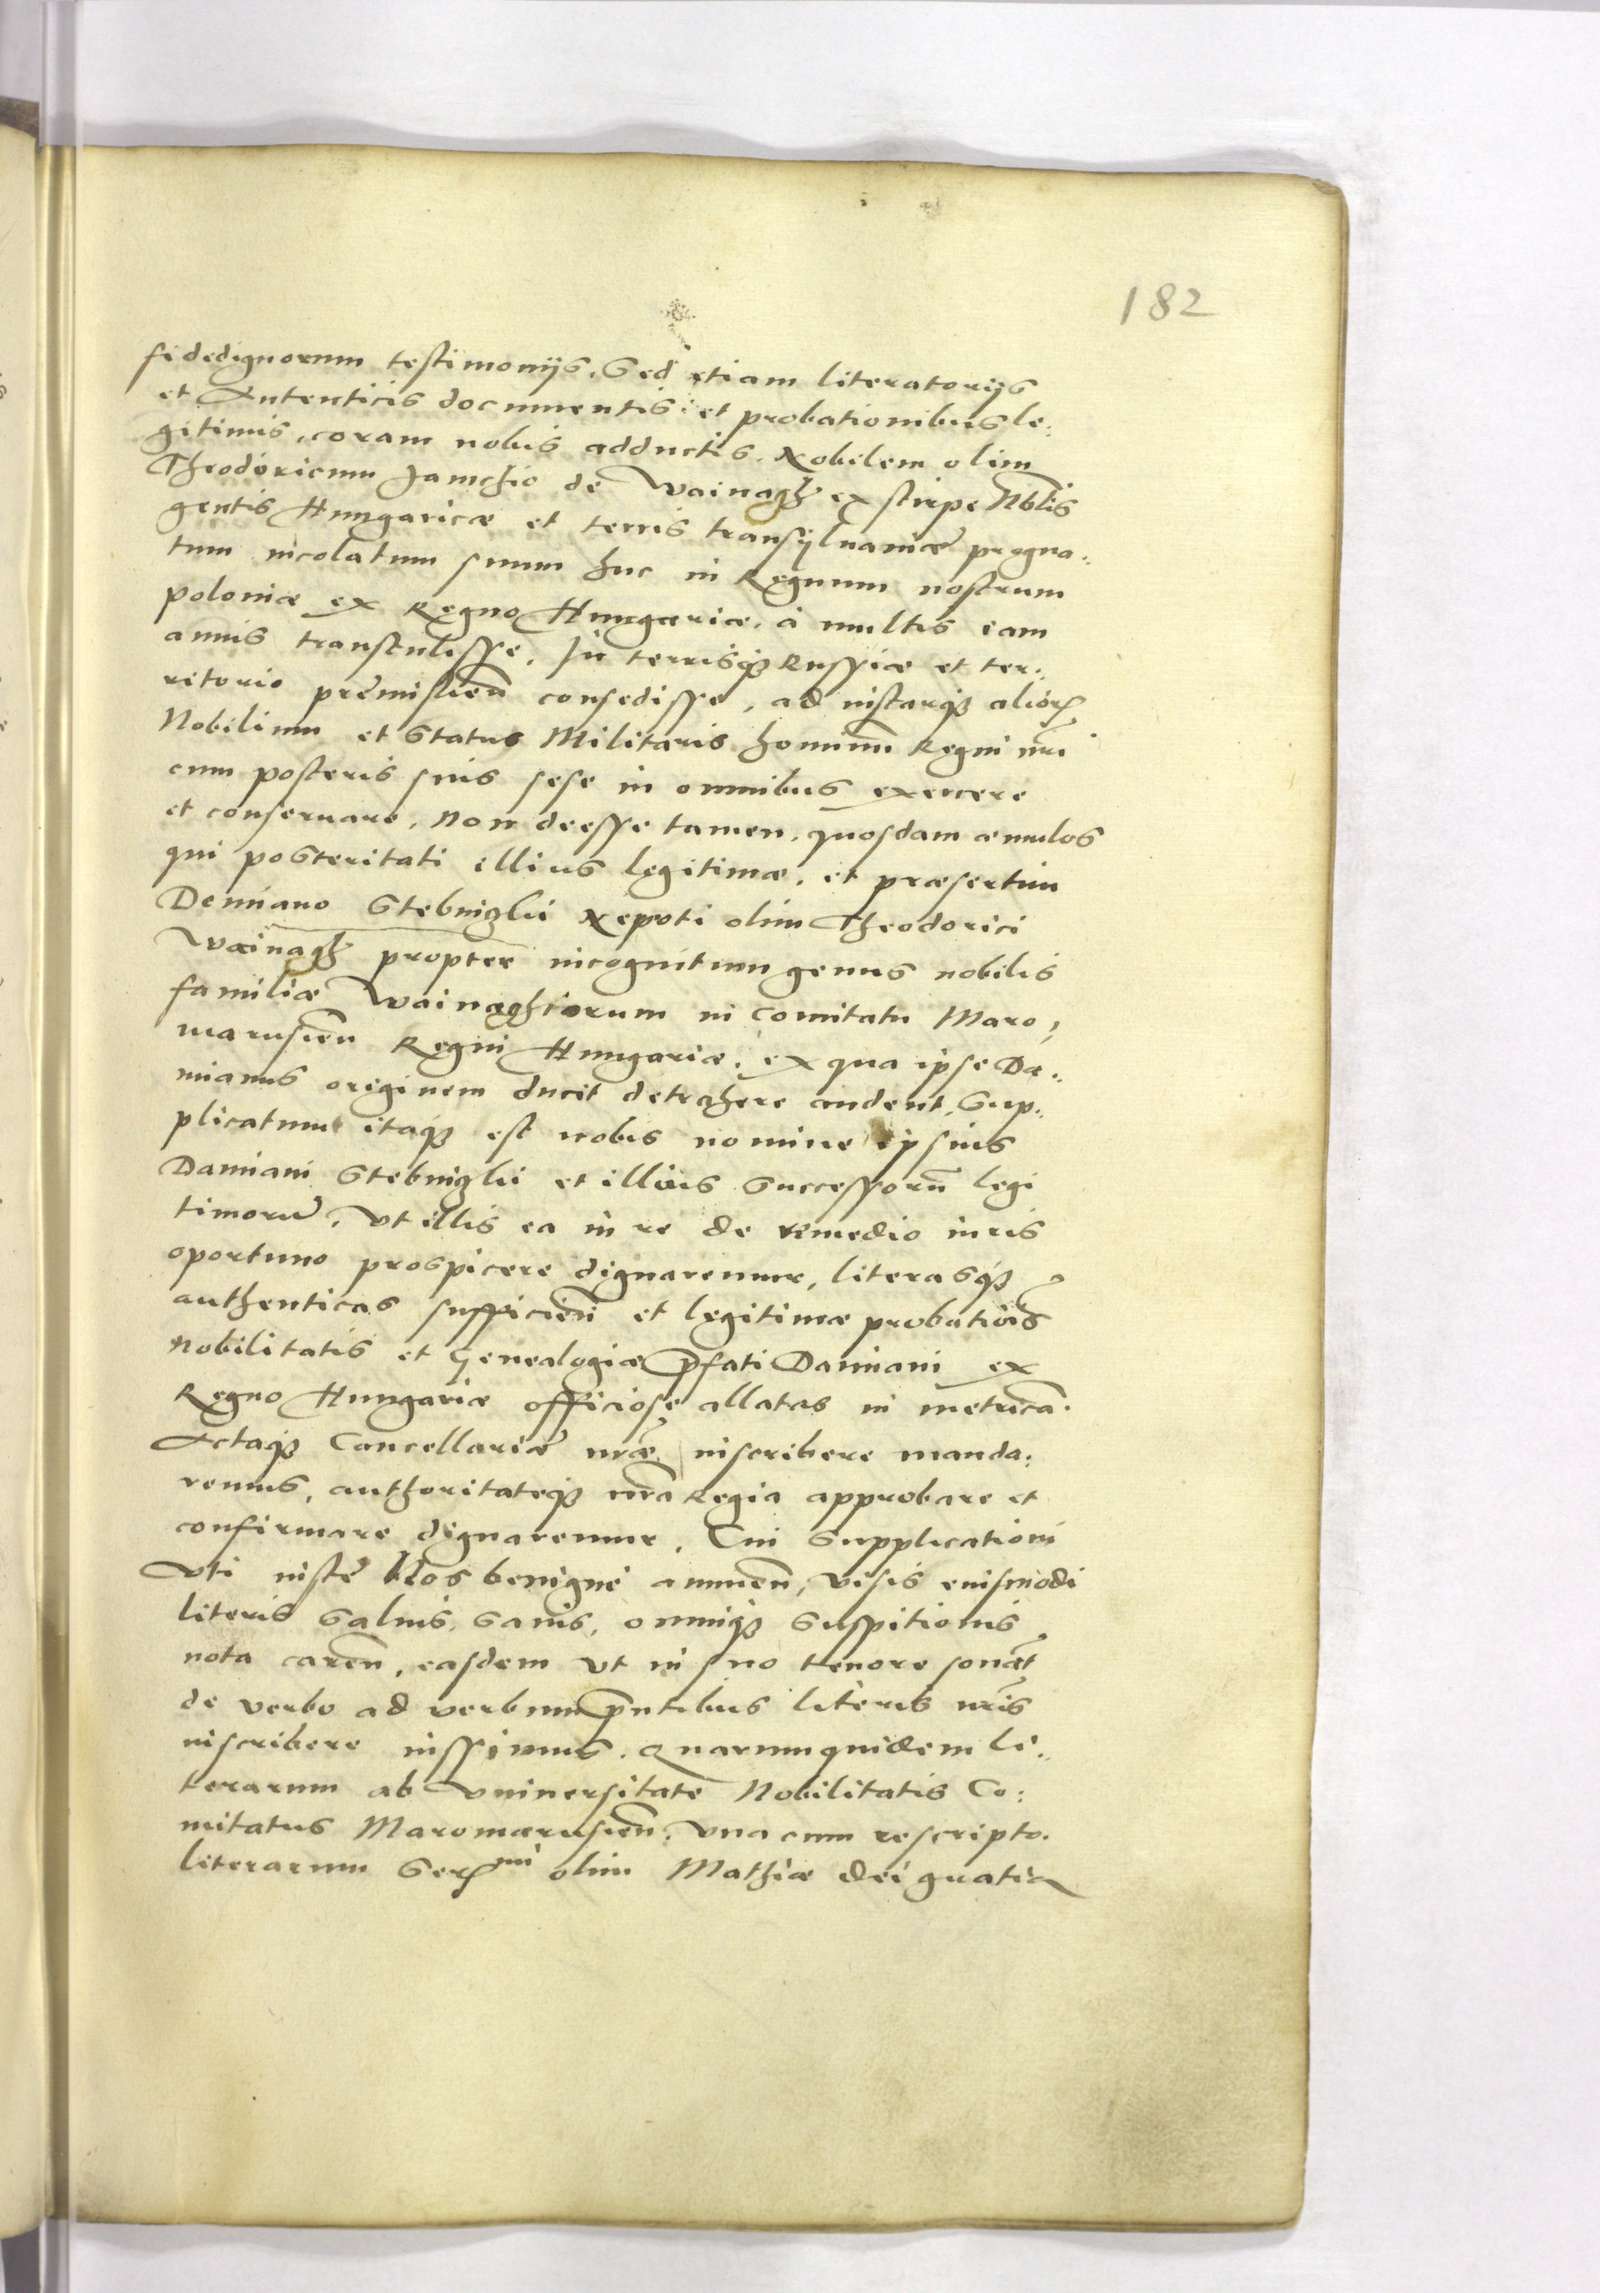 182
fidedignorum testimonijs. Sed etiam literatorijs
et Autenticis documentis: et probationibus le:
gitimis, coram nobis adductis. Nobilem olim
Theodoricum Janchio de Wainagh ex stirpe Nblis
gentis Hungaricæ et terris transylvaniæ progna:
tum incolatum suum huc in Regnum nostrum
poloniæ ex Regno Hungariæ. à multis eam
annis transtulisse. In terrisq3 Russiæ et ter:
ritorio premislien consedisse, ad instarq3 alior
Nobilium et Status Militaris hominū Regni nri
cum posteris suis sese in omnibus exercere
et conseruare. Non deesse tamen. quosdam æmulos
qui posteritati illius legitimæ. et præsertim
Demiano Stebnizkii Nepoti olim Theodorici
Wainagh propter incognitum genus nobilis
familiæ Wainaghiorum in Comitatu Maro,
marusien Regni Hungariæ. ex qua ipse Da:
mianus originem ducit detrahere audent, Sup:
plicatum itaq3 est nobis nomine ipsius
Damiani Stebnizkii et illius Successorū legi
timorū. Vt illis ea in re de remedio iuris
oportuno prospicere dignaremur, literasq3
authenticas sufficien et legitimæ probatiōis
Nobilitatis et Genealogiæ pfati Damiani ex
Regno Hungariæ officiose allatas in metricā.
Actaq3 Cancellariæ nræ inscribere manda:
remus, authoritateq3 nra Regia approbare et
confirmare dignaremur. Cui Supplicationi
Vti iustæ Nos benignè annuen, visis eiusmodi
literis Saluis, Sanis, omniq3 Suspitionis
nota caren, easdem vt in suo tenore sonāt
de verbo ad verbum pntibus literis nris
inscribere iussimus. Quarumquidem li:
terarum ab Vniuersitate Nobilitatis Co:
mitatus Maromarusien. Vna cum rescripto.
literarum Ser mi olim Mathiæ dei gratia